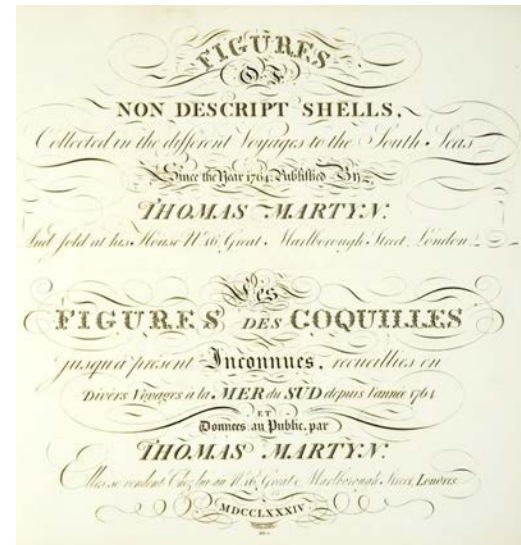 FIGURES
OF
NON DESCRIPT SHELLS,
Collected in the different Voyages to the South Seas
Since the Year 1764. Published By
THOMAS MARTYN.
And sold at his House N.º 16, Great Marlborough Street, London.
Les
FIGURES DES COQUILLES
jusqu'a présent Inconnues, recueillies en
Divèrs Voyages a la MER du SUD depuis l'année 1764
ET
Donnees au Public, par
THOMAS MARTYN.
Elles se vendent Chez lui au N.º 16, Great Marlborough Street, Londres
MDCCLXXXIV.